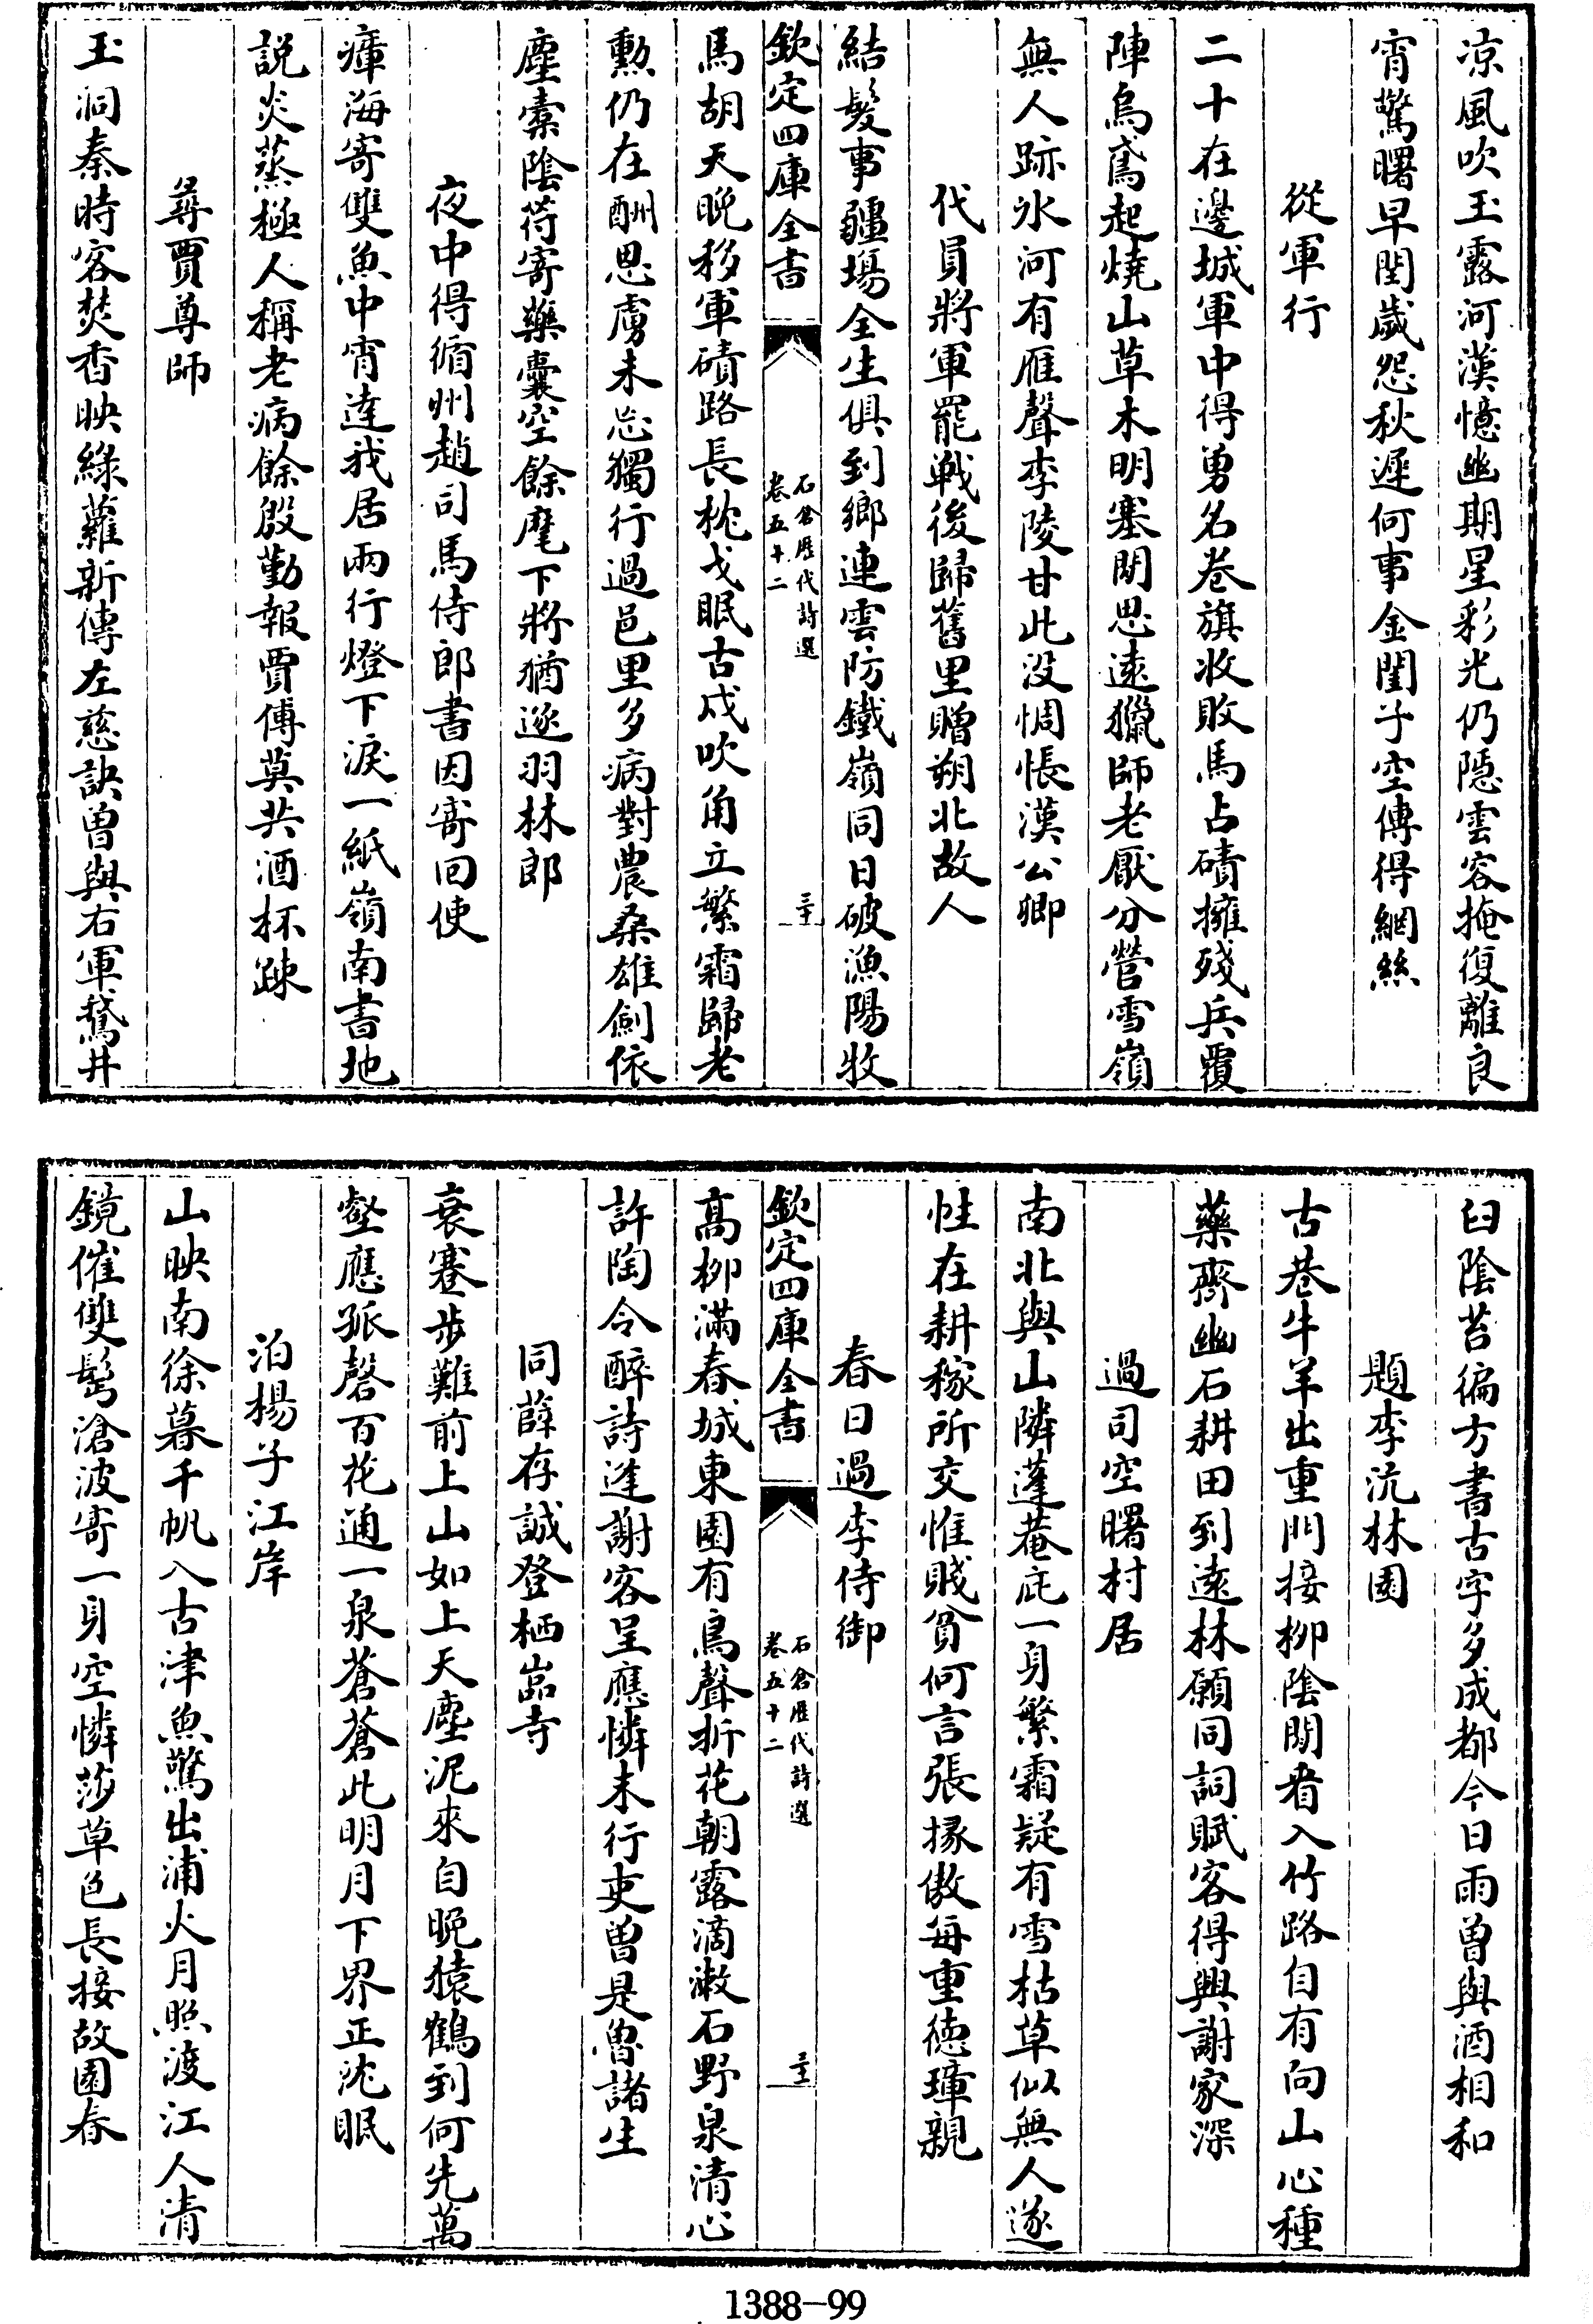 凉風吹玉露河漢憶幽期星彩光仍隱雲容掩復離良
宵驚曙早閏歲怨秋遲何事金閨子空傳得網絲
從軍行
二十在邊城軍中得勇名卷旗收敗馬占磧擁殘兵覆
陣烏鳶起燒山草木明塞閒思逺獵師老厭分營雪嶺
無人跡氷河有雁聲李陵甘此没惆悵漢公卿
代員將軍罷戰後歸舊里贈朔北故人
結髮事疆場全生俱到鄉連雲防鐵嶺同日破漁陽牧
欽定四庫全書
石倉歷代詩選
卷五十二
三十
馬胡天晚移軍磧路長枕戈眠古戍吹角立繁霜歸老
勳仍在酬恩虜未忘獨行過邑里多病對農桑雄劍依
塵橐陰符寄藥囊空餘麾下將猶逐羽林郎
夜中得循州趙司馬侍郎書因寄回使
瘴海寄雙魚中宵達我居兩行燈下淚一紙嶺南書地
説炎蒸極人稱老病餘殷勤報賈傅莫共酒杯疎
尋賈尊師
玉洞秦時客焚香映緑蘿新傳左慈訣曽與右軍鵞井
臼陰苔徧方書古字多成都今日雨曽與酒相和
題李沆林園
古巷牛羊出重門接柳陰閒看入竹路自有向山心種
藥齊幽石耕田到逺林願同詞賦客得興謝家深
過司空曙村居
南北與山隣蓬菴庇一身繁霜疑有雪枯草似無人遂
性在耕稼所交惟賤貧何言張掾傲每重徳璋親
春日過李侍御
欽定四庫全書
石倉歷代詩選
卷五十二
三十一
髙柳滿春城東園有鳥聲折花朝露滴漱石野泉清心
許陶令醉詩逢謝客呈應憐末行吏曽是魯諸生
同薛存誠登栖巖寺
衰蹇步難前上山如上天塵泥來自晚猿鶴到何先萬
壑應孤磬百花通一泉蒼蒼此明月下界正沈眠
泊楊子江岸
山映南徐暮千帆入古津魚驚出浦火月照渡江人清
鏡催雙鬂滄波寄一身空憐莎草色長接故園春
1388-99